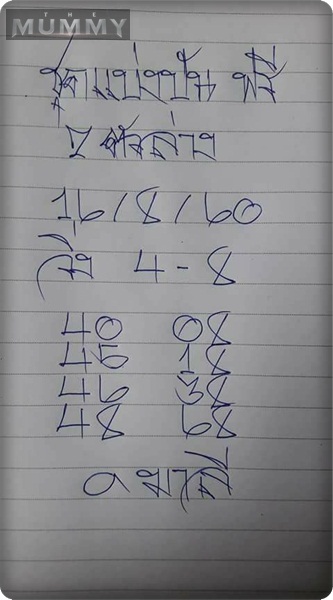 THE
MUMMY
ชุดแบ่งปัน ฟรี
2 ตัวล่าง
16/8/60
วิ่ง 4-8
40 08
45 18
46 38
48 68